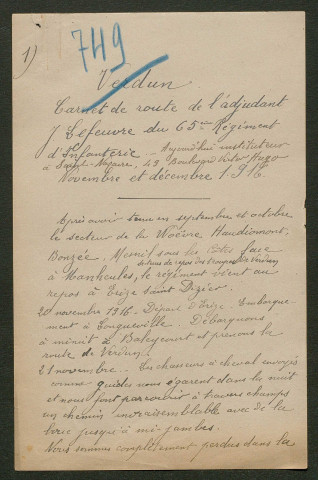 1)
749
Verdun
Carnet de route de l'adjudant
J Lefeuvre du 65ème Régiment
d'Infanterie _ Aujourd'hui instituteur
à Saint-Nazaire, 43 Boulevard Victor Hugo
Novembre et décembre 1916
Après avoir tenu en septembre et octobre
le secteur de la Woëvre Haudiomont,
Bonzée, Mesnil sous les Côtes face
secteur de repos des troupes de Verdun
à Manheules, le régiment vient au
repos à Erize Saint Dizier.
20 novembre 1916. Départ d'Erize. Embarque-
ment à Longueville. Débarquons
à minuit à Baleycourt et prenons la
route de Verdun.
21 novembre. _ Les chasseurs à cheval envoyés
comme guides nous égarent dans la nuit
et nous font parcourir à travers champs
un chemin invraisemblable avec de la
boue jusqu'à mi-jambes.
Nous sommes complètement perdus dans la